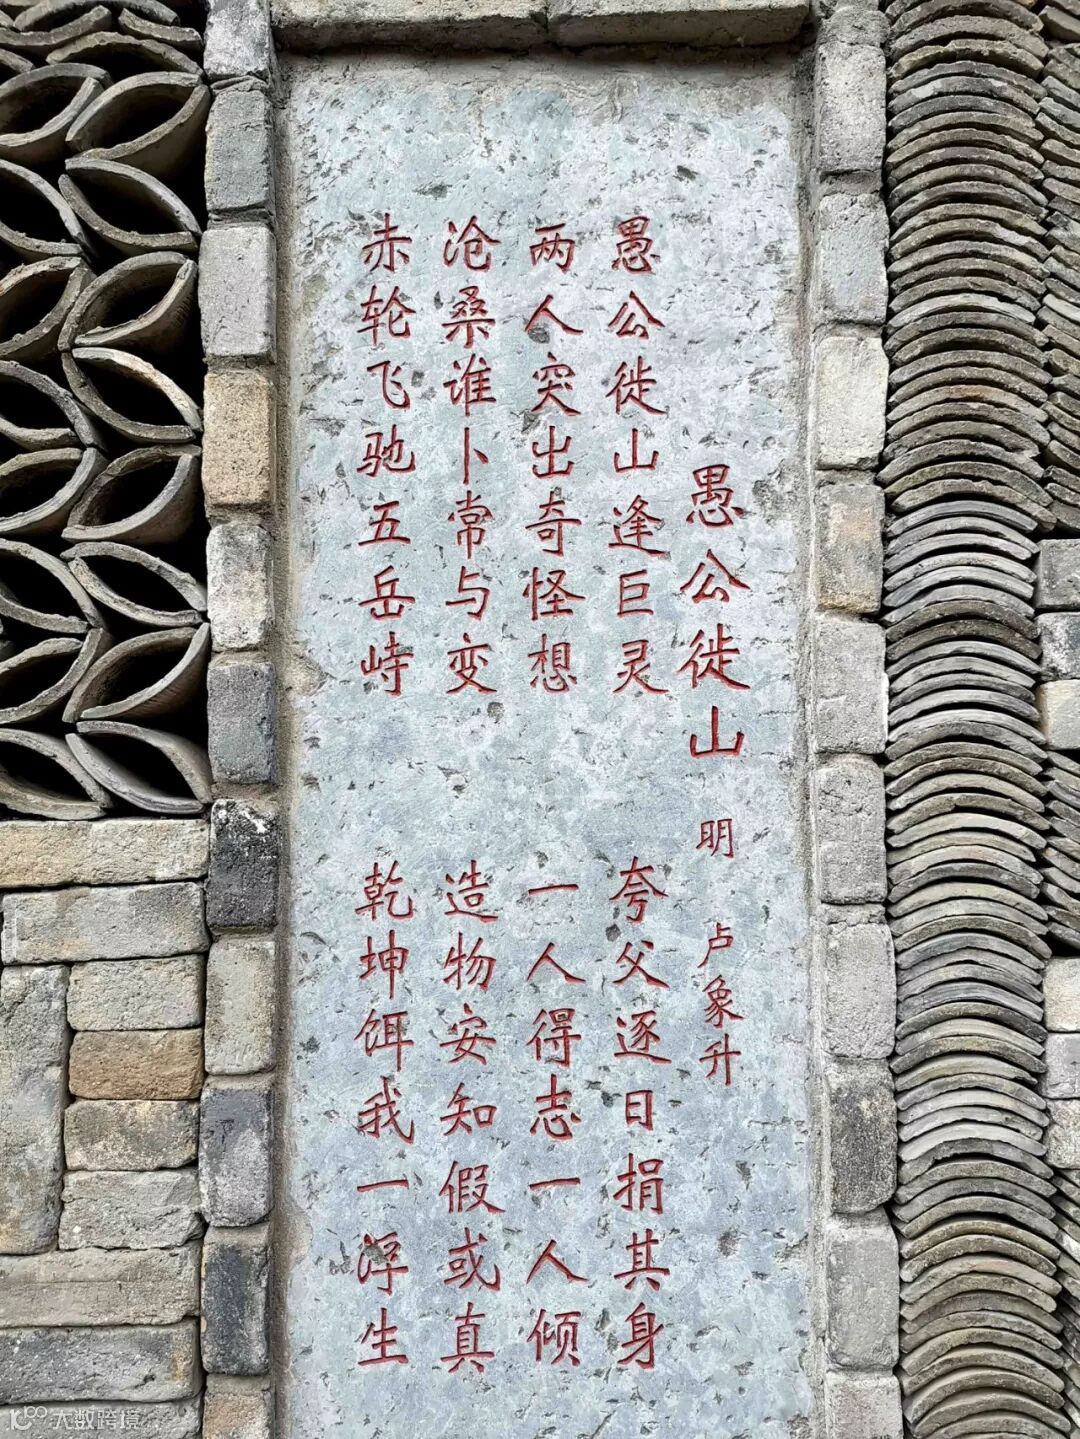 愚公徙山 明 卢象升
愚公徙山逢巨灵 夸父逐日捐其身
两人突出奇怪想 一人得志一人倾
沧桑谁卜常与变 造物安知假或真
赤轮飞驰五岳峙 乾坤饵我一浮生
大数跨境